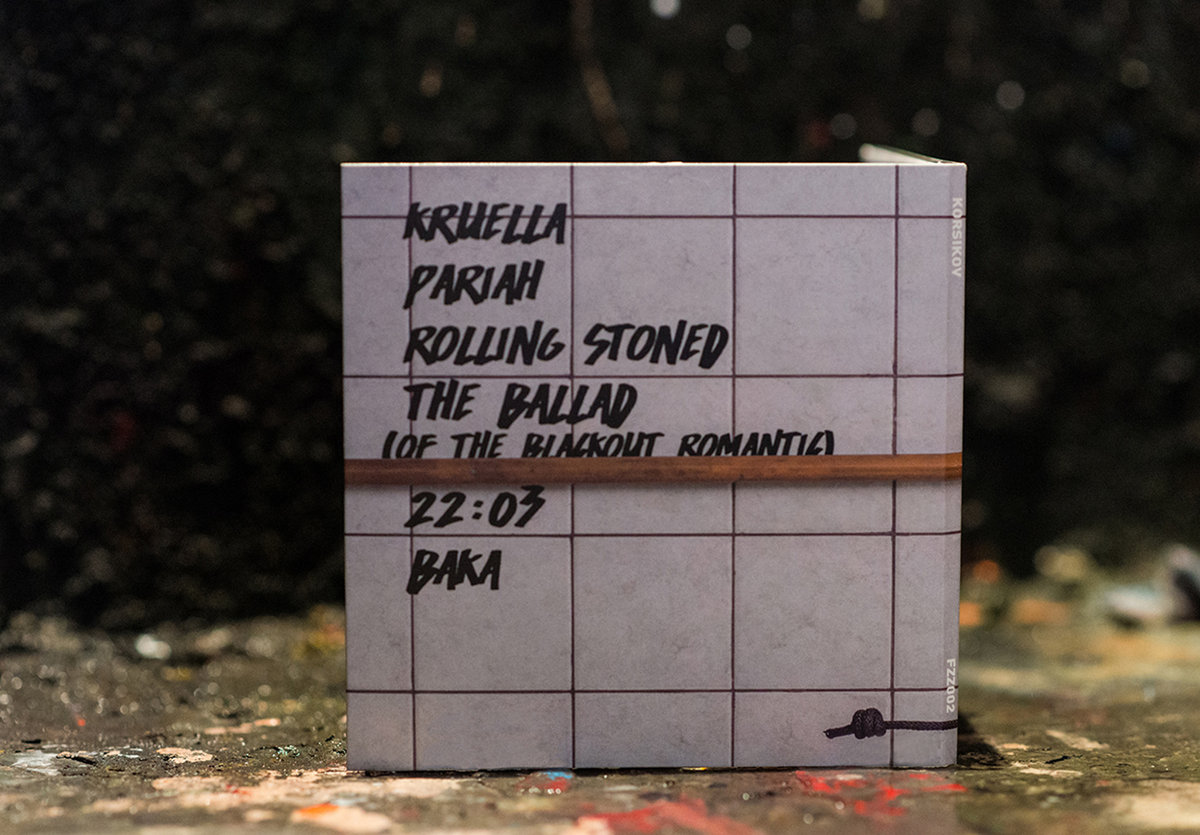 KRUELLA
PARIAH
ROLLING STONED
THE BALLAD
(OF THE BLACKOUT ROMANTIC)
22:03
BAKA
KORSIKOV
FZZ002